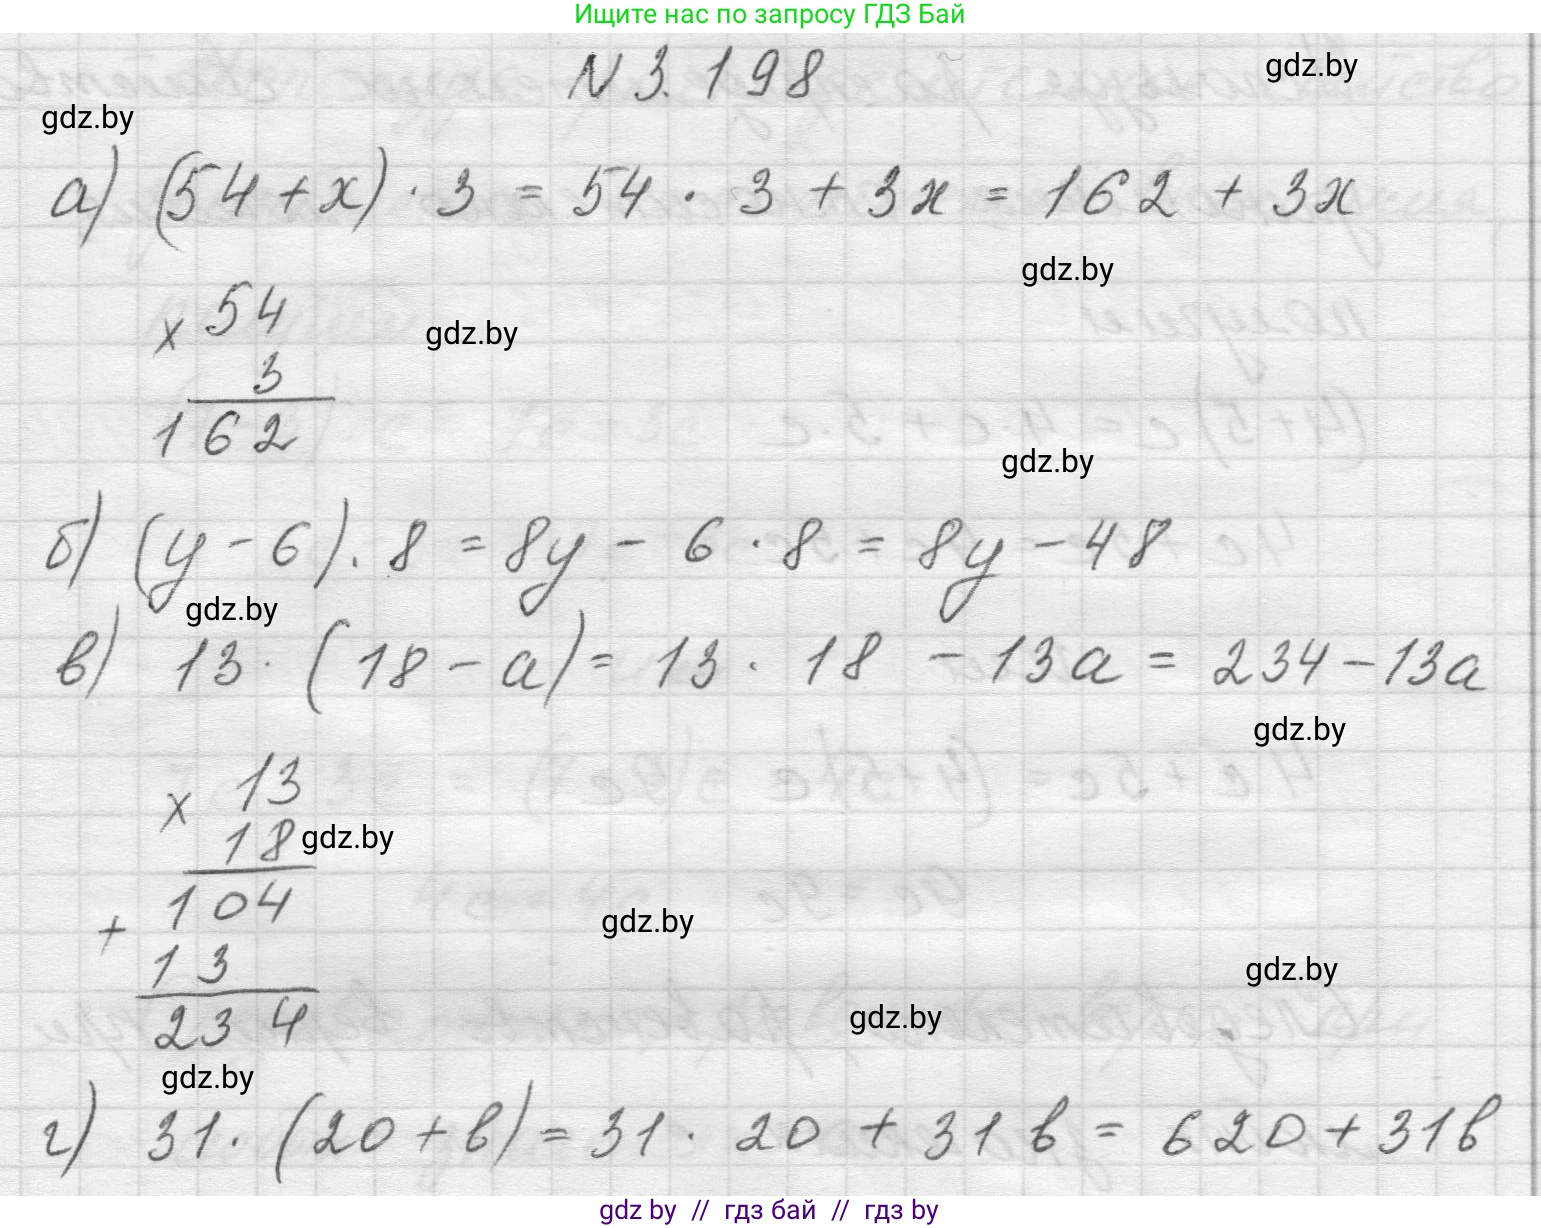 Ищите нас по запросу ГДЗ Бай
N 3.198
gdz.by
gdz.by
а) (54+x)·3 = 54·3+3x = 162+3x
gdz.by
x 54
gdz.by
3
162
gdz.by
б) (y-6)·8 = 8y - 6·8 = 8y - 48
gdz.by
в) 13·(18-a) = 13·18 - 13a = 234-13a
gdz.by
x 13
18
gdz.by
104
+
gdz.by
13
gdz.by
234
gdz.by
gdz.by
г) 31·(20+b) = 31·20+31b = 620+31b
gdz by // гдз бай // гдз by